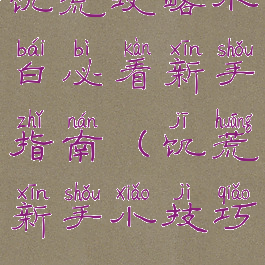 饥荒攻略小
bái bì kàn xīn shǒu
白必看新手
zhǐ nán jī huāng
指南(饥荒
xīn shǒu xiǎo jì qiǎo
新手小技巧